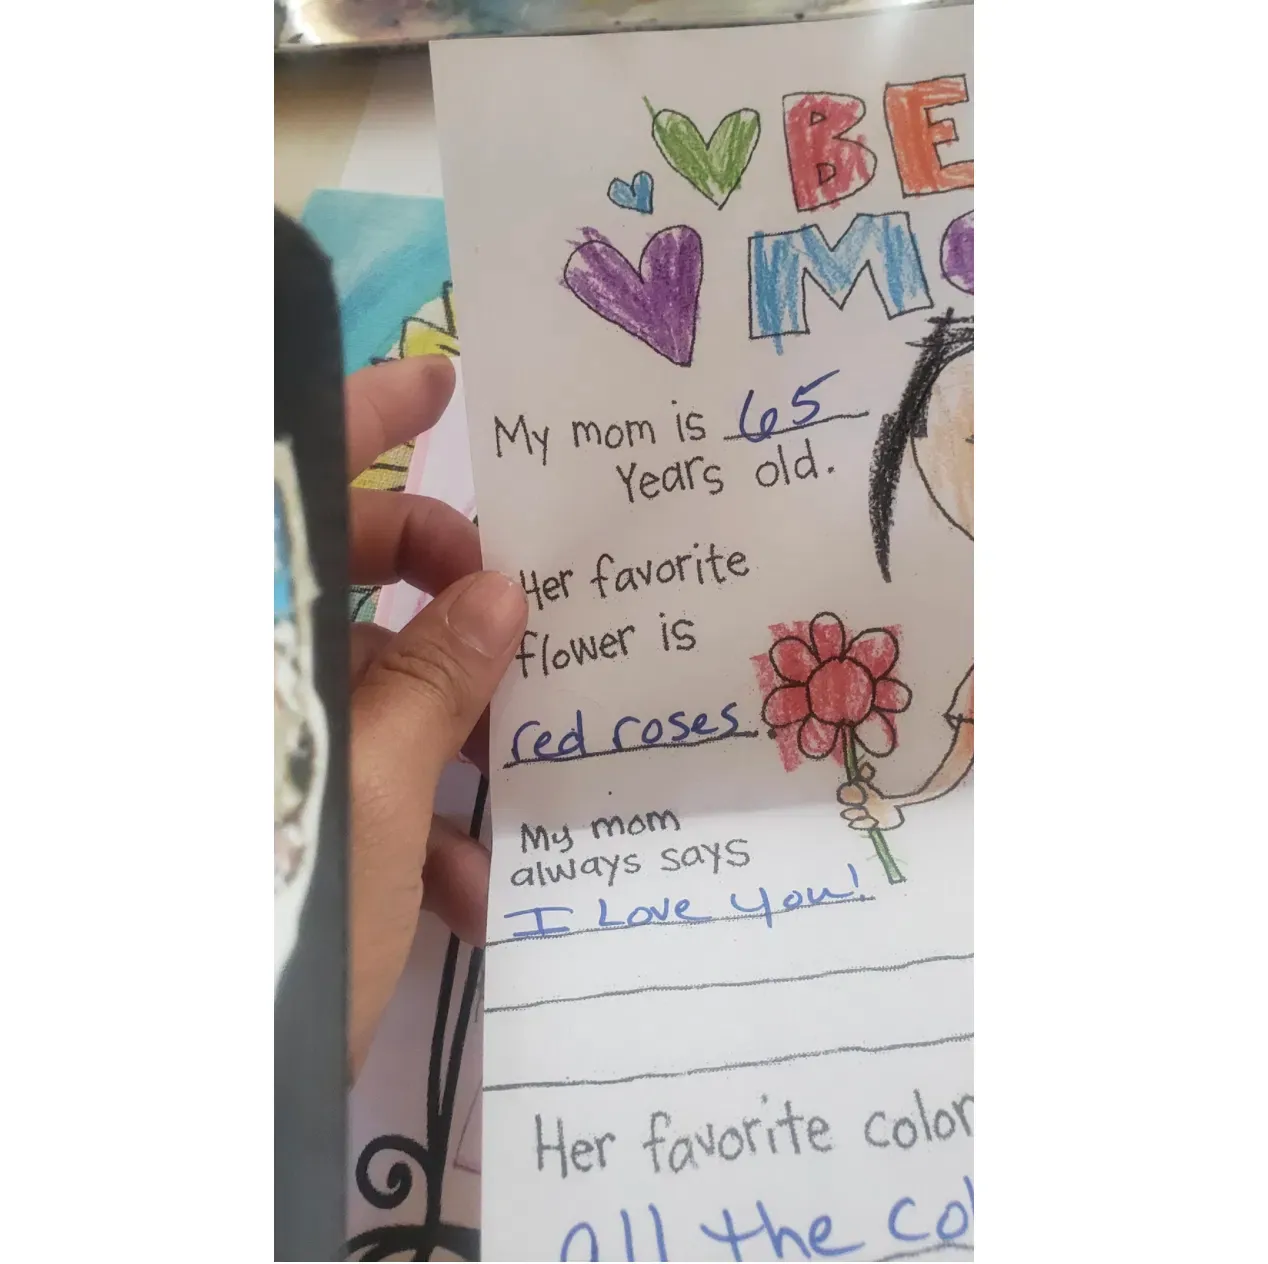 BE
MO
My mom is 65
Years old.
Her favorite
flower is
red roses.
My mom
always says
I Love you!
Her favorite color
all the col